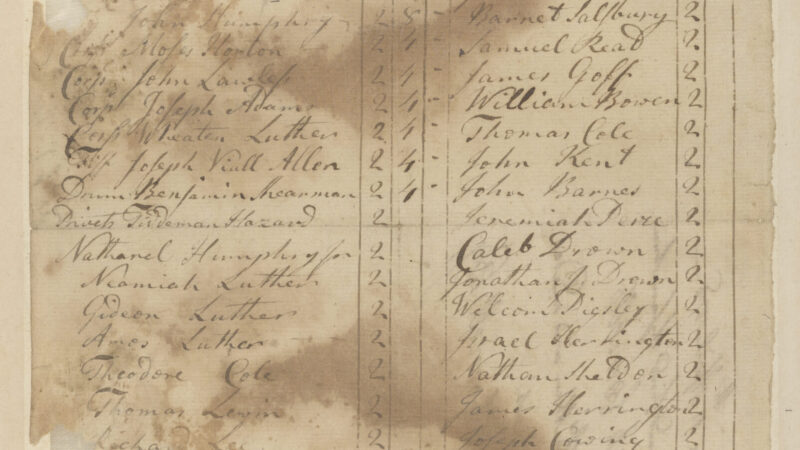 John Humphry 2 8 -
Corp Moses Horton 2 4 -
Corp John Lawless 2 4 -
Corp Joseph Adams 2 4 -
Corp Wheaten Luther 2 4 -
Corp Joseph Viall Allen 2 4 -
Drum Benjamin Shearman 2 4 -
Privets Tideman Hazard 2
Nathanel Humphry jn 2
Neamiah Luther 2
Gideon Luther 2
Amos Luther 2
Theodore Cole 2
Thomas Lewin 2
Richard Lee 2
Barnet Salsbury 2
Samuel Read 2
James Goff 2
William Bowen 2
Thomas Cole 2
John Kent 2
John Barnes 2
Jeremiah 2
Caleb Drown 2
Jonathan J. Drown 2
Digsley 2
Israel Herrington 2
Nathan Sheldon 2
James Herrington 2
Joseph Cowing 2